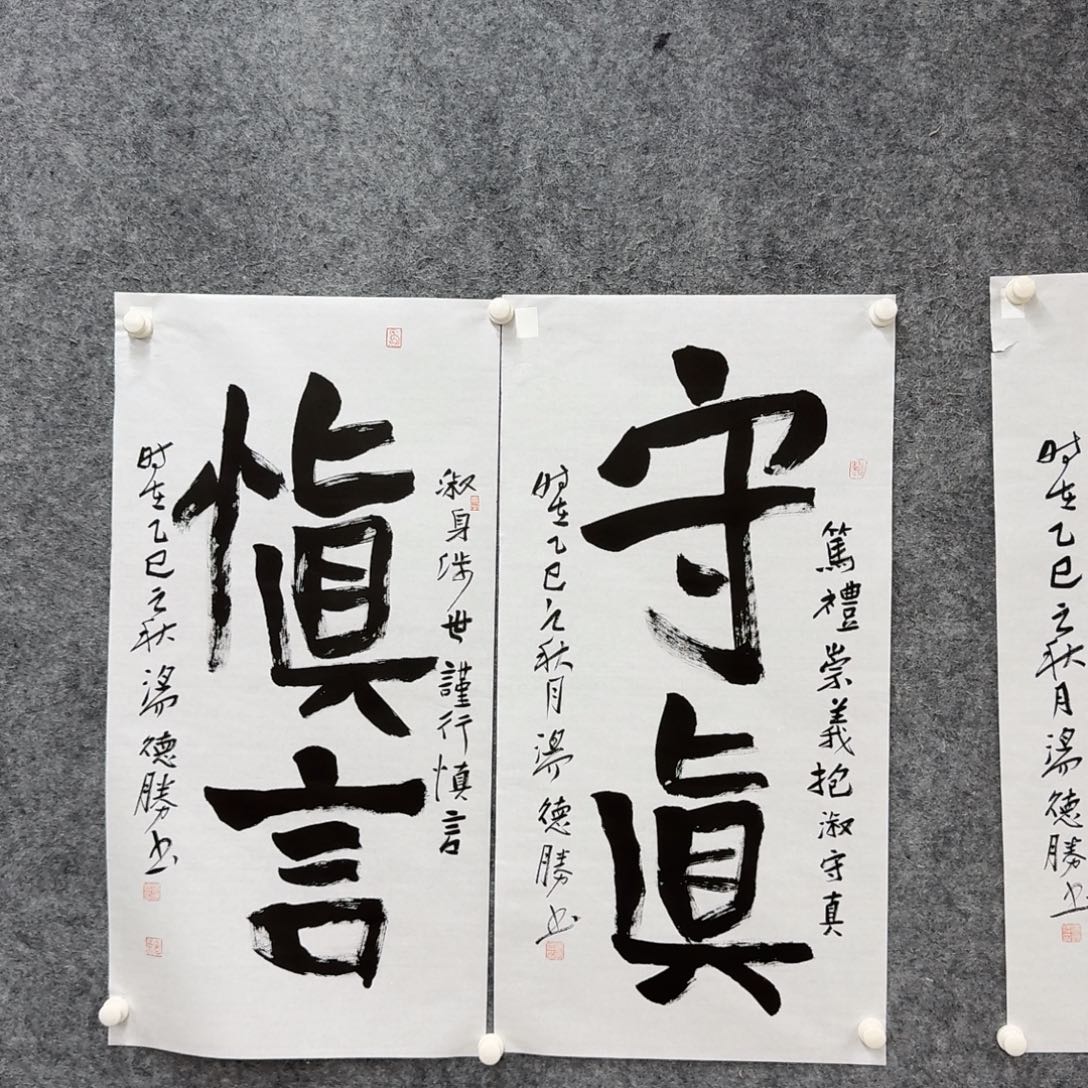 守眞
篤禮崇義抱淑守真
时在乙巳之秋月湯德勝书
慎言
淑身涉世謹行慎言
时在乙巳之秋湯德勝书
时在乙巳之秋月湯德勝书